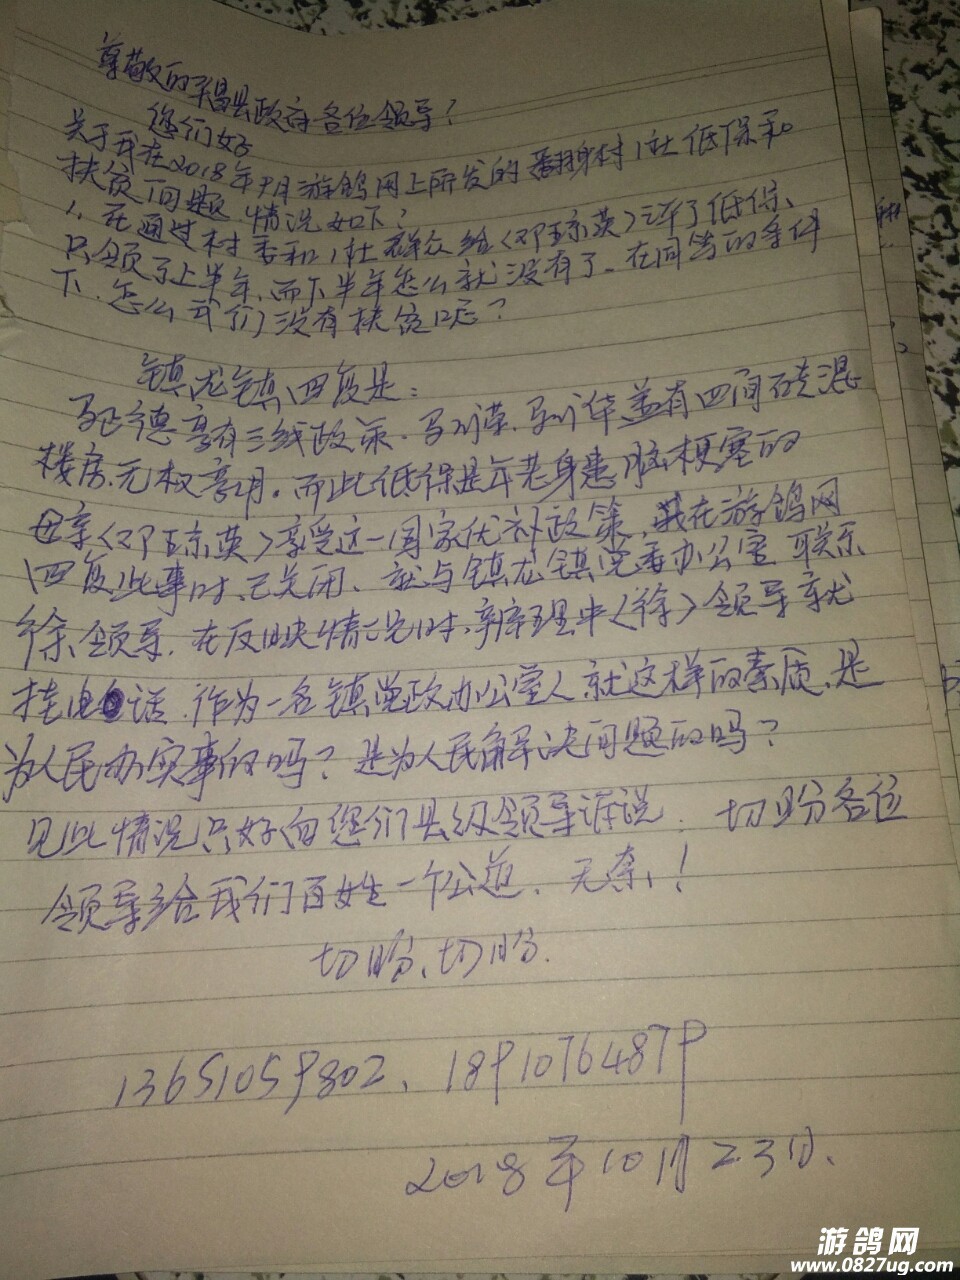 尊敬的平昌县政府各位领导?
您们好
关于我在2018年9月游鸽网上所发的翻身村1社低保和
扶贫问题 情况如下:
1、在通过村委和1社群众给〈邓琼英〉评了低保、
只领了上半年、而下半年怎么就没有了。在同等的条件
下、怎么我们没有扶贫呢?
镇龙镇回复是:
德享有三线政策、马 荣、马 华盖有四间砖混
楼房、无权享用。而此低保是年老身患脑梗塞的
母亲〈邓琼英〉享受这一国家优补政策、我在游鸽网
回复此事时、已关闭、就与镇龙镇党委办公室联系
徐、领导、在反映情况时、办理中〈徐〉领导就
挂电话、作为一名镇党政办公室人就这样的素质、是
为人民办实事的吗?是为人民解决问题的吗?
见此情况只好向您们县级领导诉说、切盼各位
领导给我们百姓一个公道、无奈!
切盼、切盼.
13651059802、18910764879
2018年10月23日、
游鸽网
www.0827ug.com